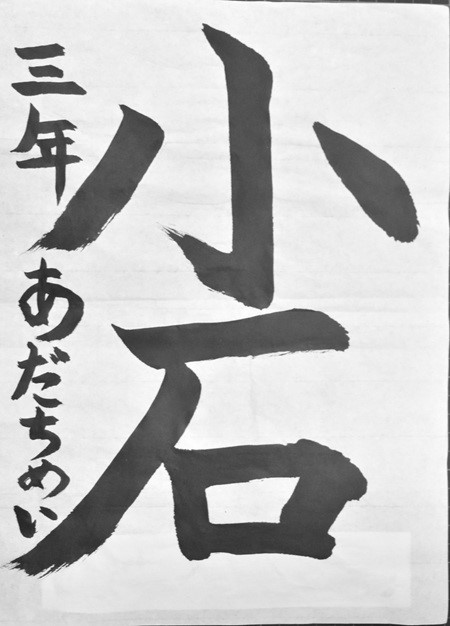 小石
三年あだちめい